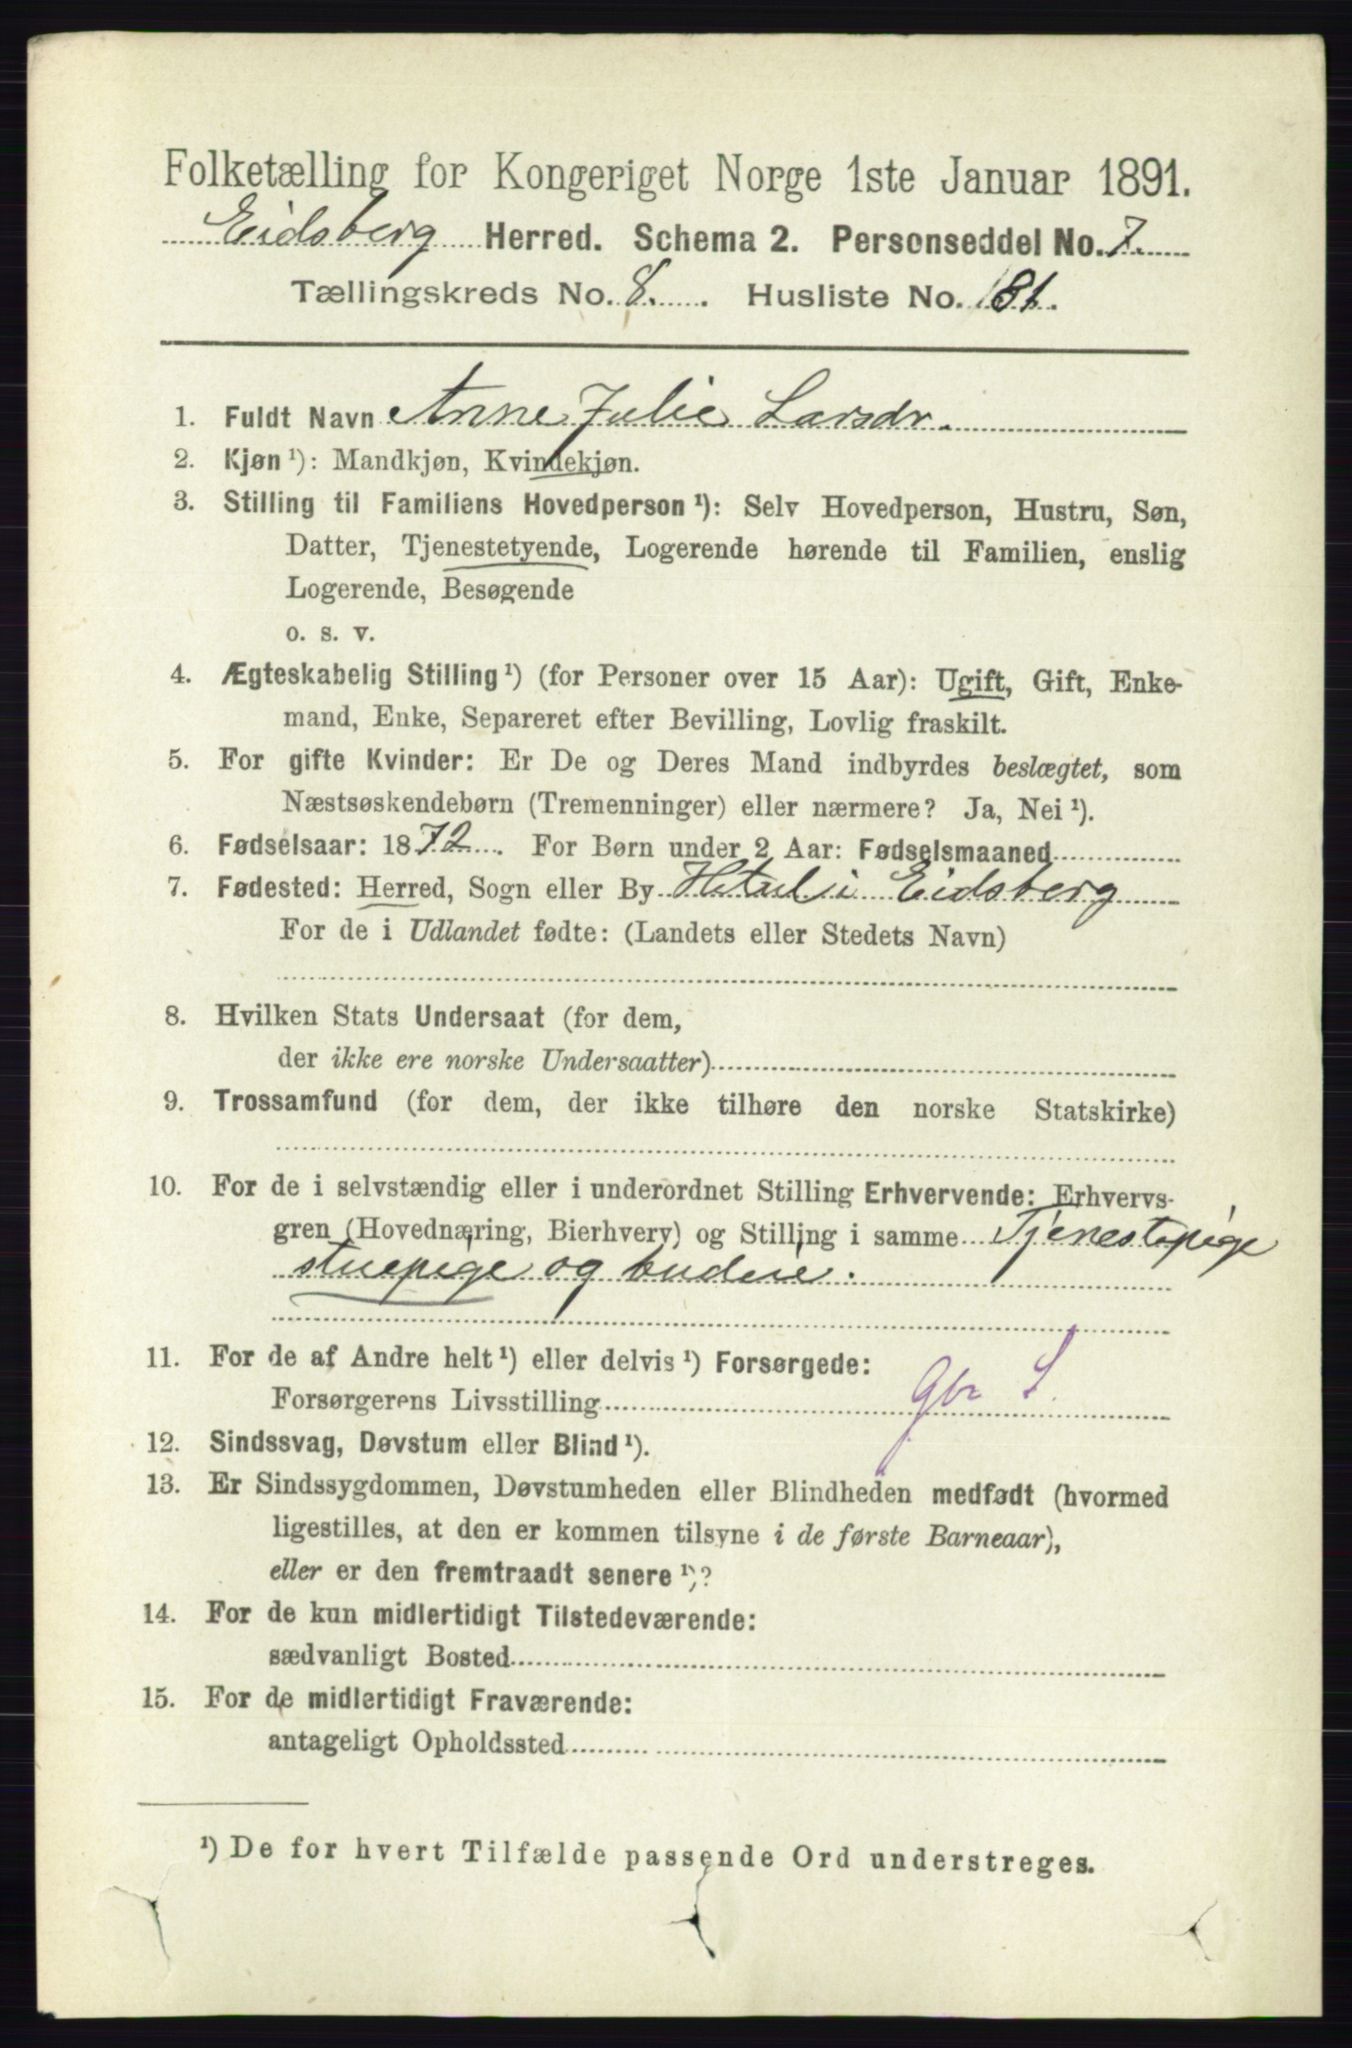 Folketælling for Kongeriget Norge 1ste Januar 1891.
Eidsberg Herred. Schema 2. Personseddel No. 7.
Tællingskreds No. 8. Husliste No. 181.
1. Fuldt Navn Anne Julie Larsdr.
2. Kjøn ¹): Mandkjøn, Kvindekjøn.
3. Stilling til Familiens Hovedperson ¹): Selv Hovedperson, Hustru, Søn,
Datter, Tjenestetyende, Logerende hørende til Familien, enslig
Logerende, Besøgende
o. s. v.
4. Ægteskabelig Stilling ¹) (for Personer over 15 Aar): Ugift, Gift, Enke-
mand, Enke, Separeret efter Bevilling, Lovlig fraskilt.
5. For gifte Kvinder: Er De og Deres Mand indbyrdes beslægtet, som
Næstsøskendebørn (Tremenninger) eller nærmere? Ja, Nei ¹).
6. Fødselsaar: 1872. For Børn under 2 Aar: Fødselsmaaned
7. Fødested: Herred, Sogn eller By i Eidsberg
For de i Udlandet fødte: (Landets eller Stedets Navn)
8. Hvilken Stats Undersaat (for dem,
der ikke ere norske Undersaatter)
9. Trossamfund (for dem, der ikke tilhøre den norske Statskirke)
10. For de i selvstændig eller i underordnet Stilling Erhvervende: Erhvervs-
gren (Hovednæring, Bierhverv) og Stilling i samme Tjenestepige
stuepige og budeie.
11. For de af Andre helt ¹) eller delvis ¹) Forsørgede:
Forsørgerens Livsstilling Gbr S.
12. Sindssvag, Døvstum eller Blind ¹).
13. Er Sindssygdommen, Døvstumheden eller Blindheden medfødt (hvormed
ligestilles, at den er kommen tilsyne i de første Barneaar),
eller er den fremtraadt senere ¹)?
14. For de kun midlertidigt Tilstedeværende:
sædvanligt Bosted
15. For de midlertidigt Fraværende:
antageligt Opholdssted
¹) De for hvert Tilfælde passende Ord understreges.